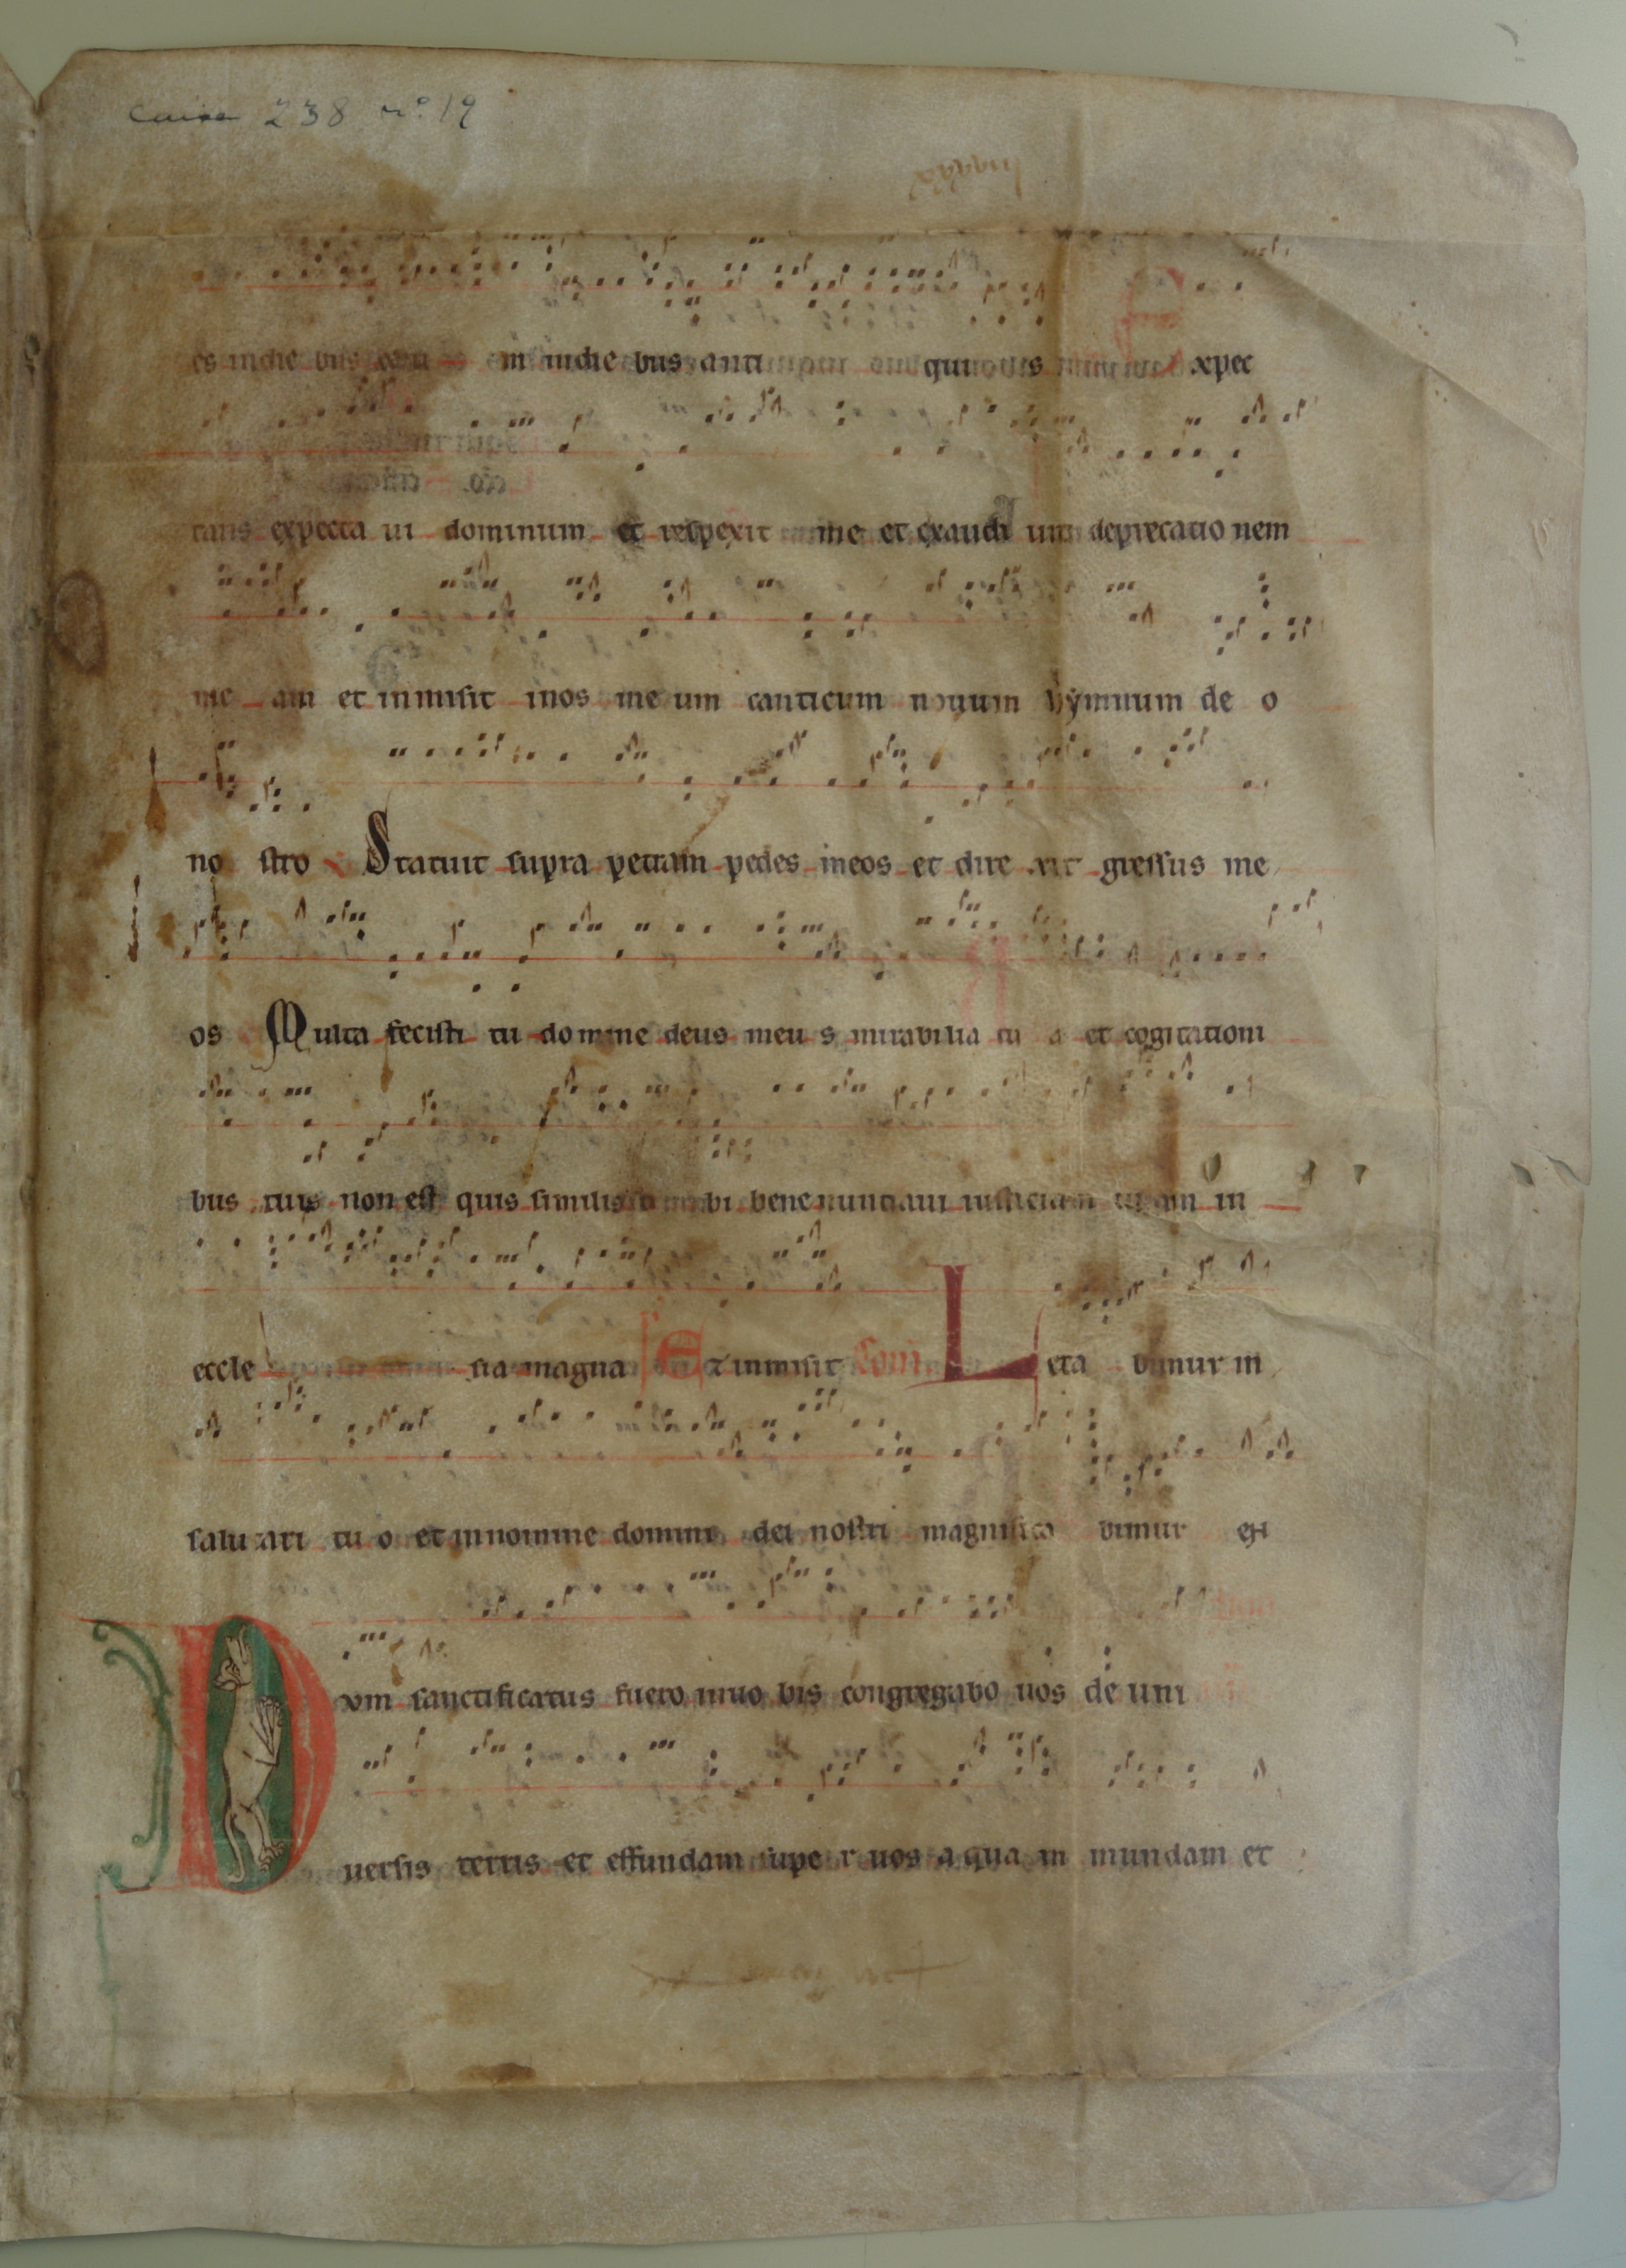 caixa 238 nº 19
es indie bus in indie bus anti quis E xpec
tans expecta ui dominum et respexit me et exaudi uit deprecatio nem
me am et inmisit inos me um canticum nouum hymnum de o
no stro Statuit supra petram pedes meos et dire xit gressus me
os Multa fecisti tu domine deus meu s mirabilia tu a et cogitationi
bus tuis non est quis similis ti bi bene nuntiaui iusticiam tuam in
eccle sia magna Et inmisit Com Leta bimur in
salutari tu o et innomine domini dei nostri magnifica bimur
Dum sanctificatus fuero inuo bis congregabo uos de uni
uersis terris et effundam supe r uos aqua m mundam et